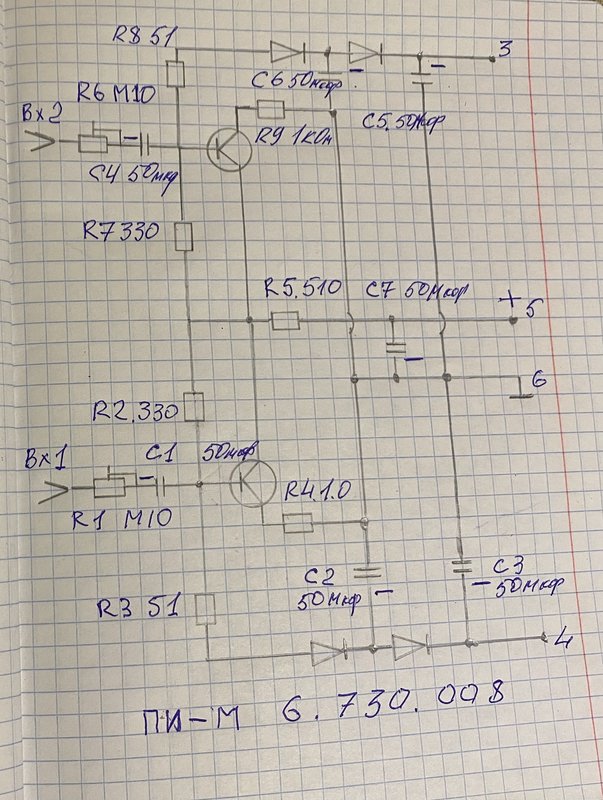 R8 51
3
C6 50мкф
R6 М10
Вх2
R9 1кОм
C5.50мкф
C4 50мкф
R7 330
R5.510
C7 50мкф
+
5
6
R2.330
Вх1
C1
50мкф
R4 1.0
R1 М10
C2
50мкф
C3
50мкф
R3 51
4
ПИ-М 6.730.008